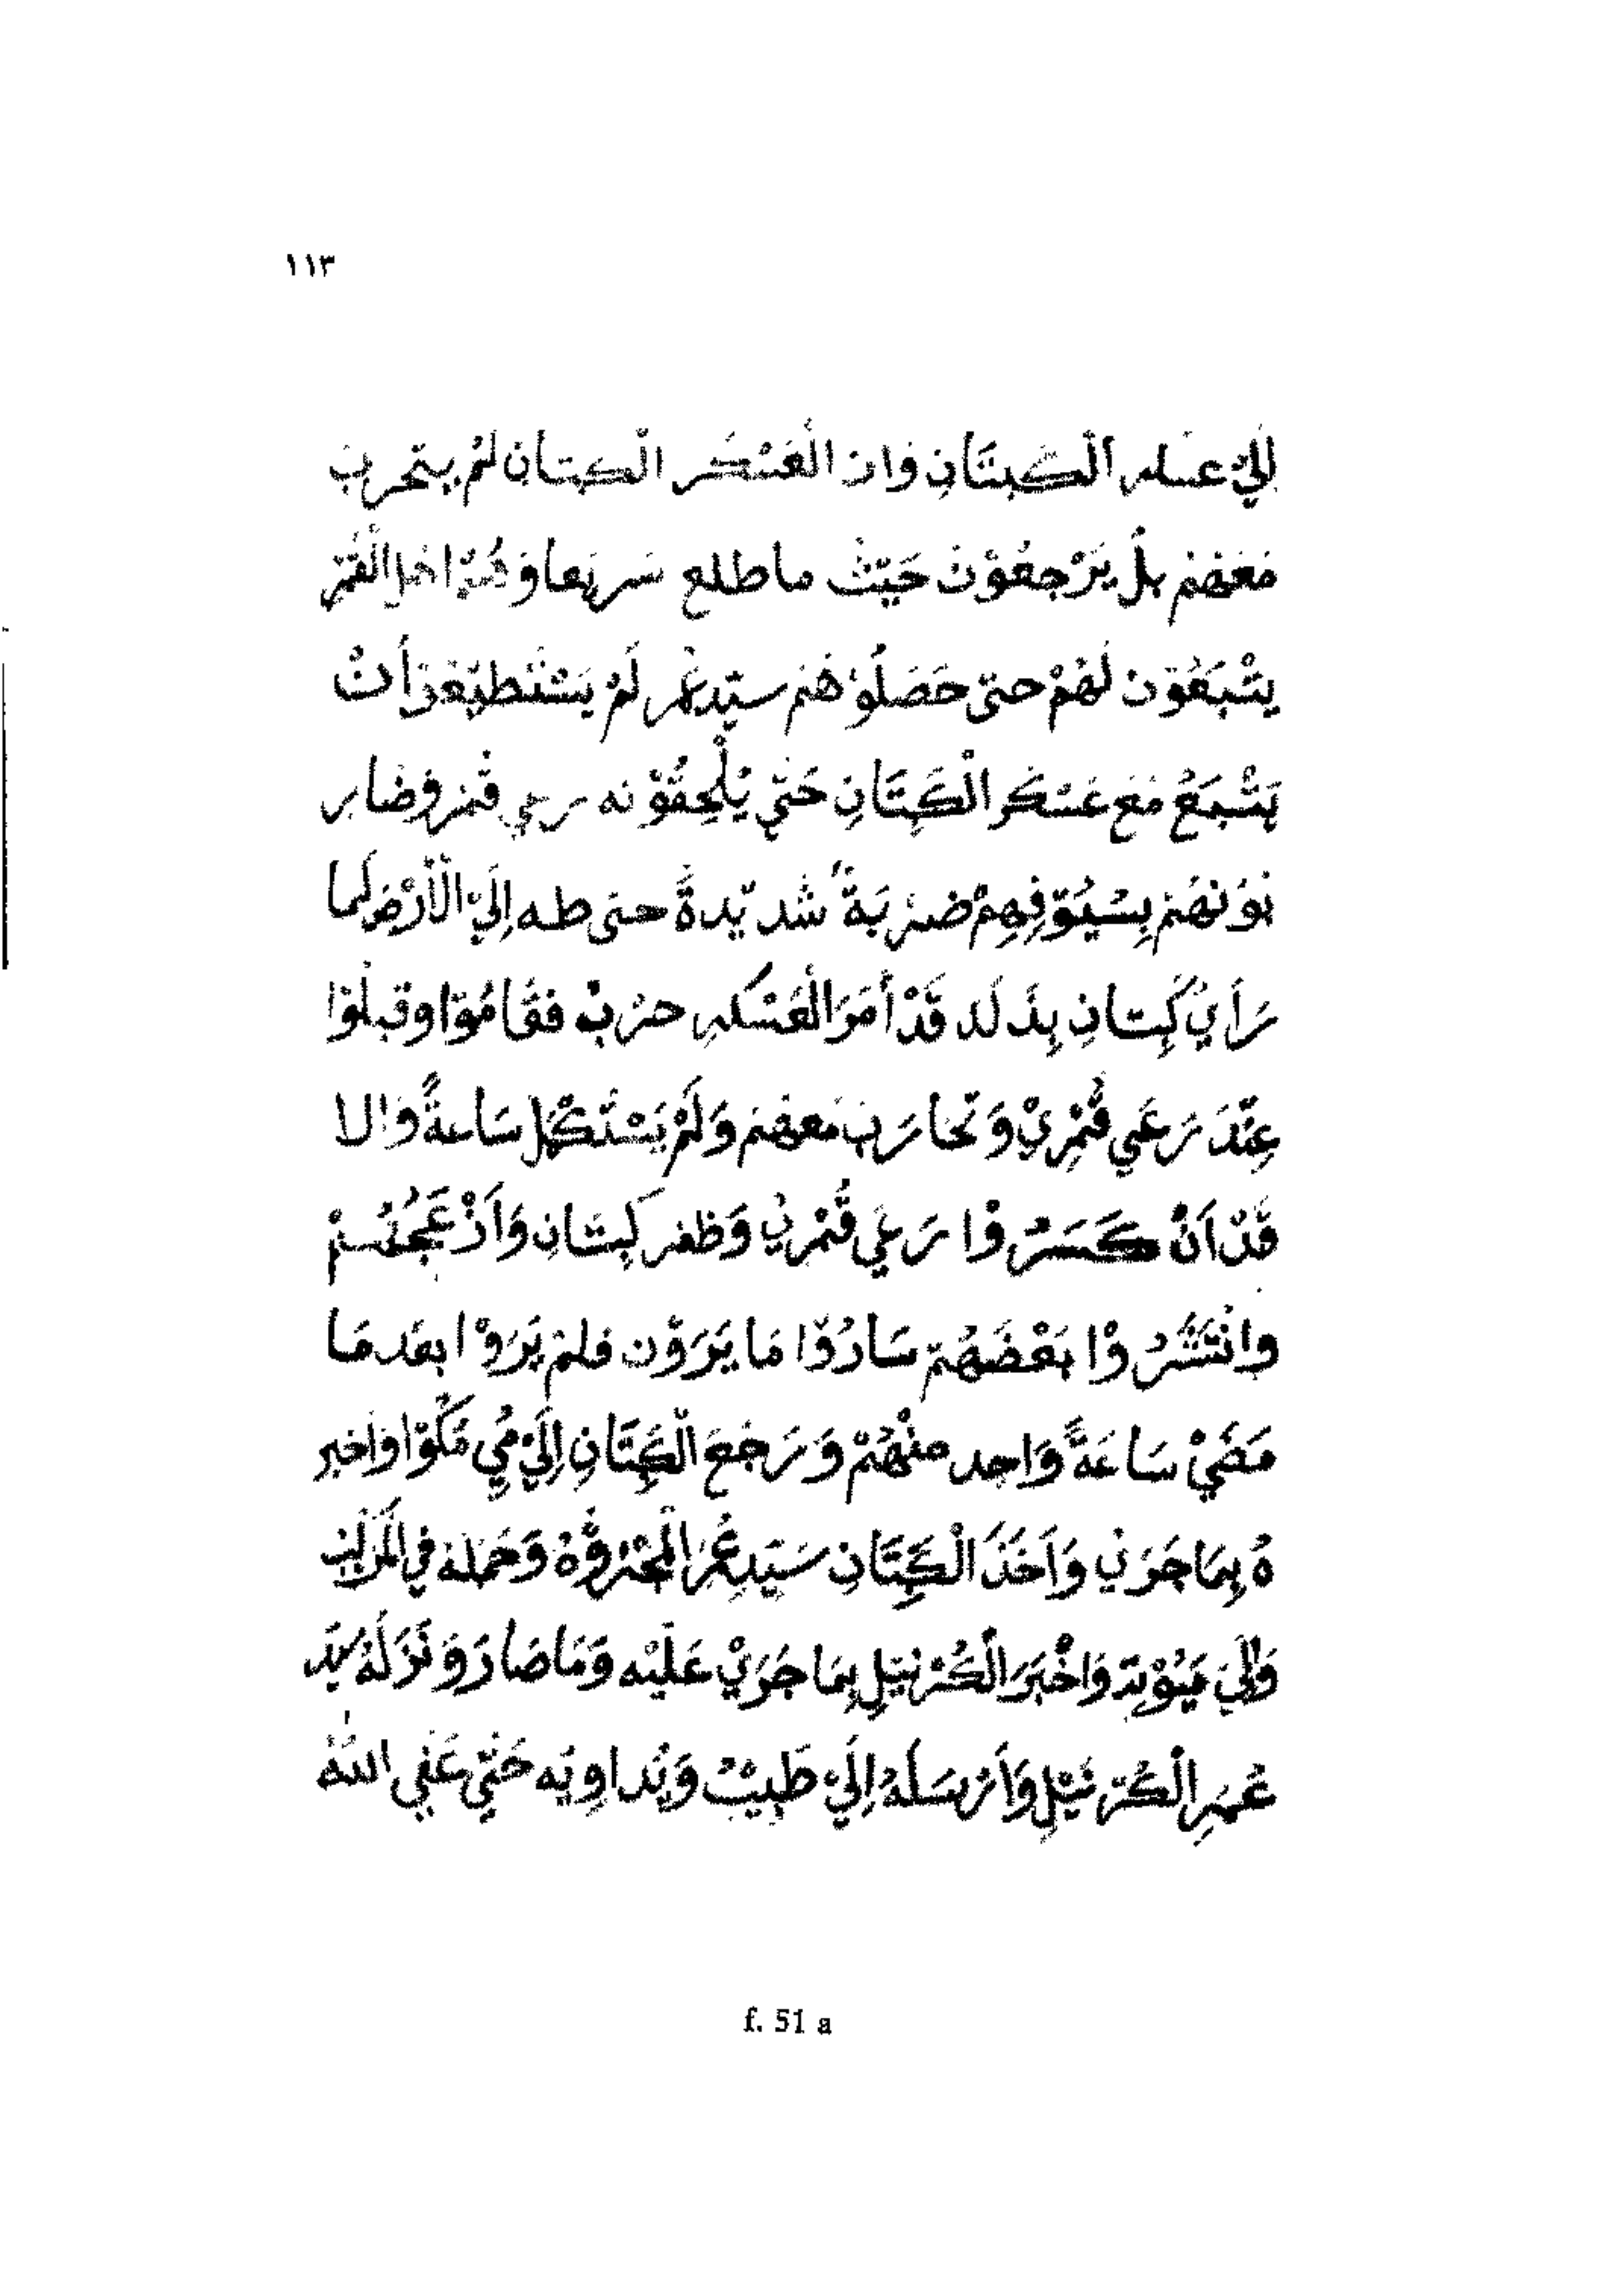 ١١٣
إِلَيْ عسكر الْكَبِتَانِ وَان الْعَسْكَر الْكبتان لَمْ يتحرب
مَعَهُمْ بلْ يَرْجعُوْنَ حَيْثُ ما طلع سَريْعا وَهُمْ اهل الْقُمْر
يتْبَعُوْن لَهُمْ حتى حَصَلُوْ هُمْ سيّد عمر لَمْ يَسْتَطيْعُوْ أَنْ
يَتْبَعُ مَعَ عَسْكر الْكَبِتَانِ حَتَّي يُلْحِقُوْنه رعي قُمْر وَضار
بُوْنهُمْ بِسُيُوْفِهِمْ ضرْبَةً شديْدةً حتى طه إِلَيْ الْأَرْض لَما
رَأَيْ كَبِتانِ بِذلَك قَدْ أَمَرَ الْعَسْكرِ حرْبْ فقَامُوْا وقبلُوْا
عِنْدَ رَعَيِ قُمْرِيْ وَتحَارَب مَعهُمْ وَلَمْ يَسْتَكْمل سَاعةً وَالا
قَدْ اَنْ كَسَرُوْا رَعَيِ قُمْرِيْ وَظفر كَبِتَانِ وَاَنْ عَجُهُمْ
وانْتَشَرُوْا بَعْضَهُمْ سَارُوْا مَا يَرَوْن فلمْ يَرَوْا بعْدمَا
مَضَيْ سَاعَةً وَاحِد منْهُمْ وَرَجَعَ الْكَبِتَانِ إِلَيْ مِي مَكُوْا وَاخبر
هُ بِمَا جَرَيْ وَاَخَذَ الْكَبِتَانِ سَيِّد عُمَر الْمَجْرُوْهُ وَحَمَلهُ فِي الْمَرْكَب
وَالَيْ مَيُوْتة وَاخْبَرَ الْكُرْنَيْلِ بِمَا جَرَيْ عَلَيْه وَمَا صَارَ وَنَزَلَهُ سَيّد
عُمَرِ الْكُرْنَيْلِ وَاَرْسَلَهُ إِلَيْ طَبِيْبْ وَيُداوِيْه حَتَّي عَفِي اللهُ
f. 51 a